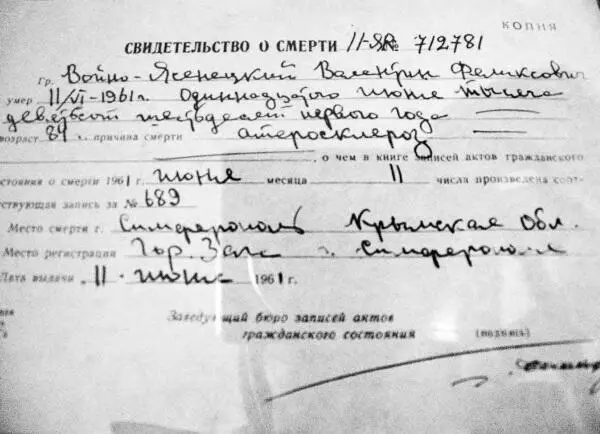 КОПИЯ
СВИДЕТЕЛЬСТВО О СМЕРТИ II-ЯЯ № 712781
Гр. Войно-Ясенецкий Валентин Феликсович
умер 11/VI-1961г. Одиннадцатого июня тысяча
девятьсот шестьдесят первого года
возраст 84 причина смерти атеросклероз
, о чем в книге записей актов гражданского
состояния о смерти 1961 г. июня месяца 11 числа произведена соот-
тствующая запись за № 689
Место смерти г. Симферополь Крымская Обл.
Место регистрации Гор. Загс г. Симферополя
Дата выдачи 11 июня 1961 г.
Заведующий бюро записей актов
гражданского состояния (подпись)